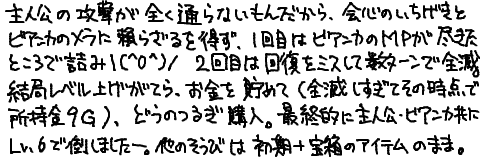 主人公の攻撃が全く通らないもんだから、会心のいちげきと
ビアンカのメラに頼らざるを得ず、1回目はビアンカのMPが尽きた
ところで詰み\(^0^)/ 2回目は回復をミスして数ターンで全滅。
結局レベル上げがてら、お金を貯めて(全滅しすぎてその時点で
所持金9G)、どうのつるぎ購入。最終的に主人公・ビアンカ共に
Lv.6で倒しましたー。他のそうびは初期+宝箱のアイテムのまま。